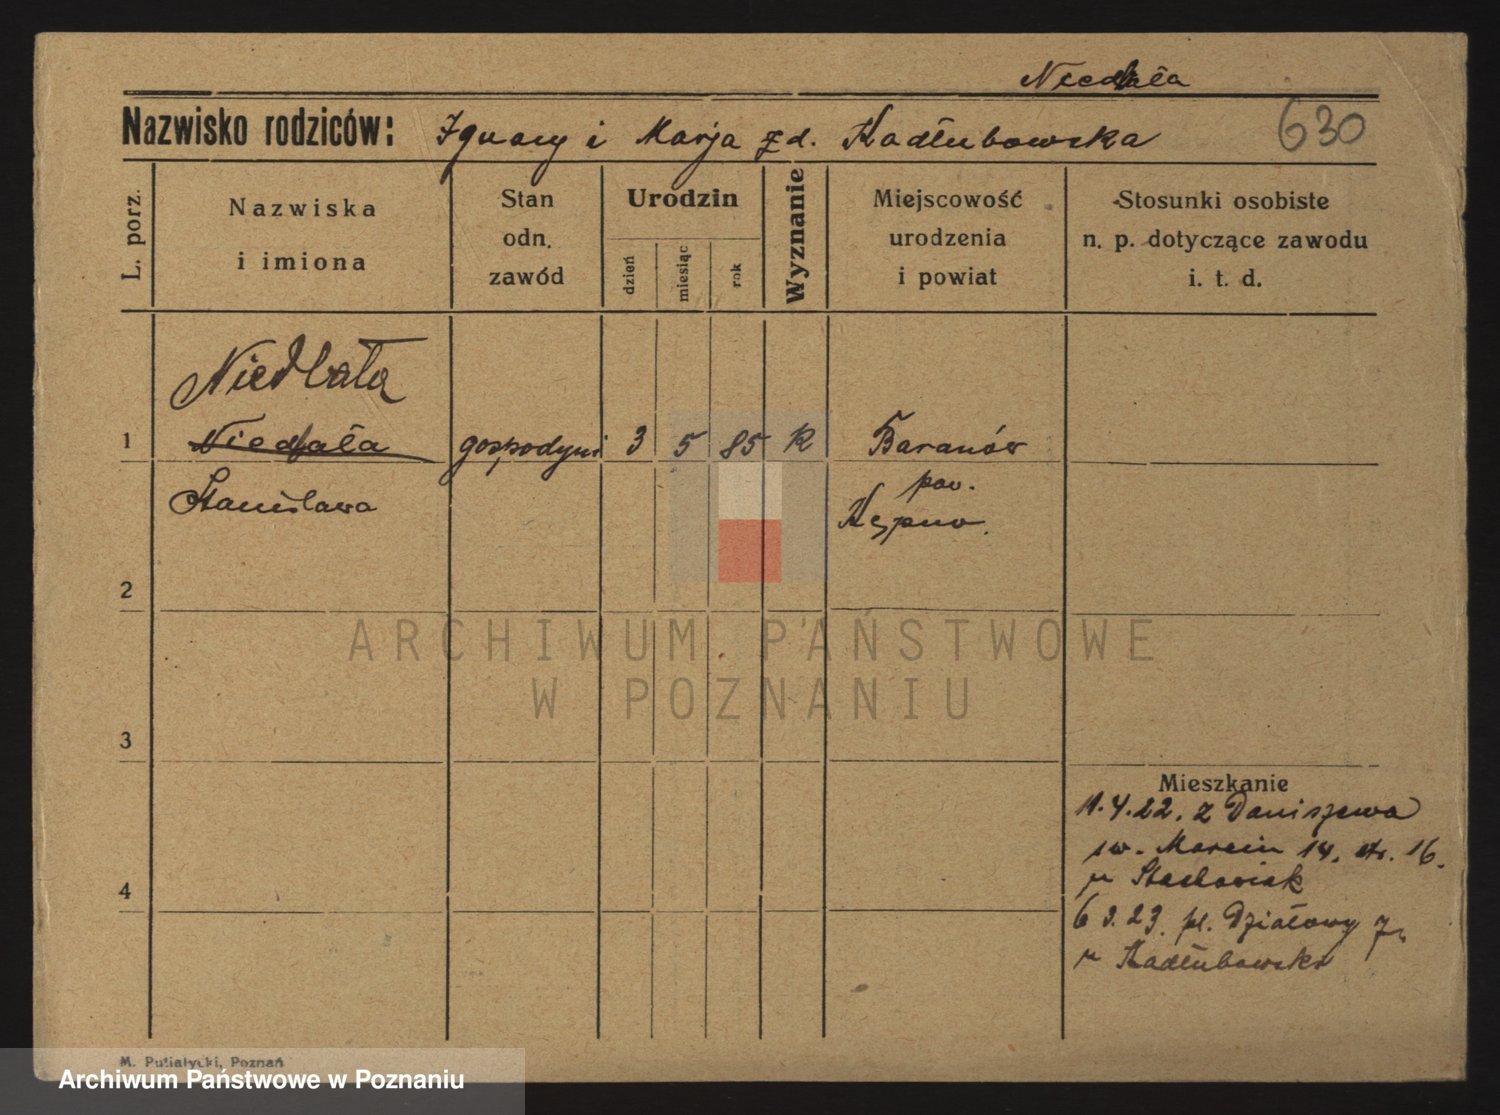 Niedbała
Nazwisko rodziców: Ignacy i Marja z d. Kadłubowska
630
L. porz.
Nazwiska
i imiona
Stan
odn.
zawód
Urodzin
dzień
miesiąc
rok
Wyznanie
Miejscowość
urodzenia
i powiat
Stosunki osobiste
n. p. dotyczące zawodu
i. t. d.
Niedbała
1 Niedbała gospodyni 3 5 85 K Baranów
Stanisława
pow.
Kępno.
2
3
4
ARCHIWUM PAŃSTWOWE
W POZNANIU
Mieszkanie
11.4.22. z Daniszewa
św. Marcin 14. 16.
u Stachowiak
6 3.23. pl. Działowy
u Kadłubowska
M. Putiatycki, Poznań
Archiwum Państwowe w Poznaniu